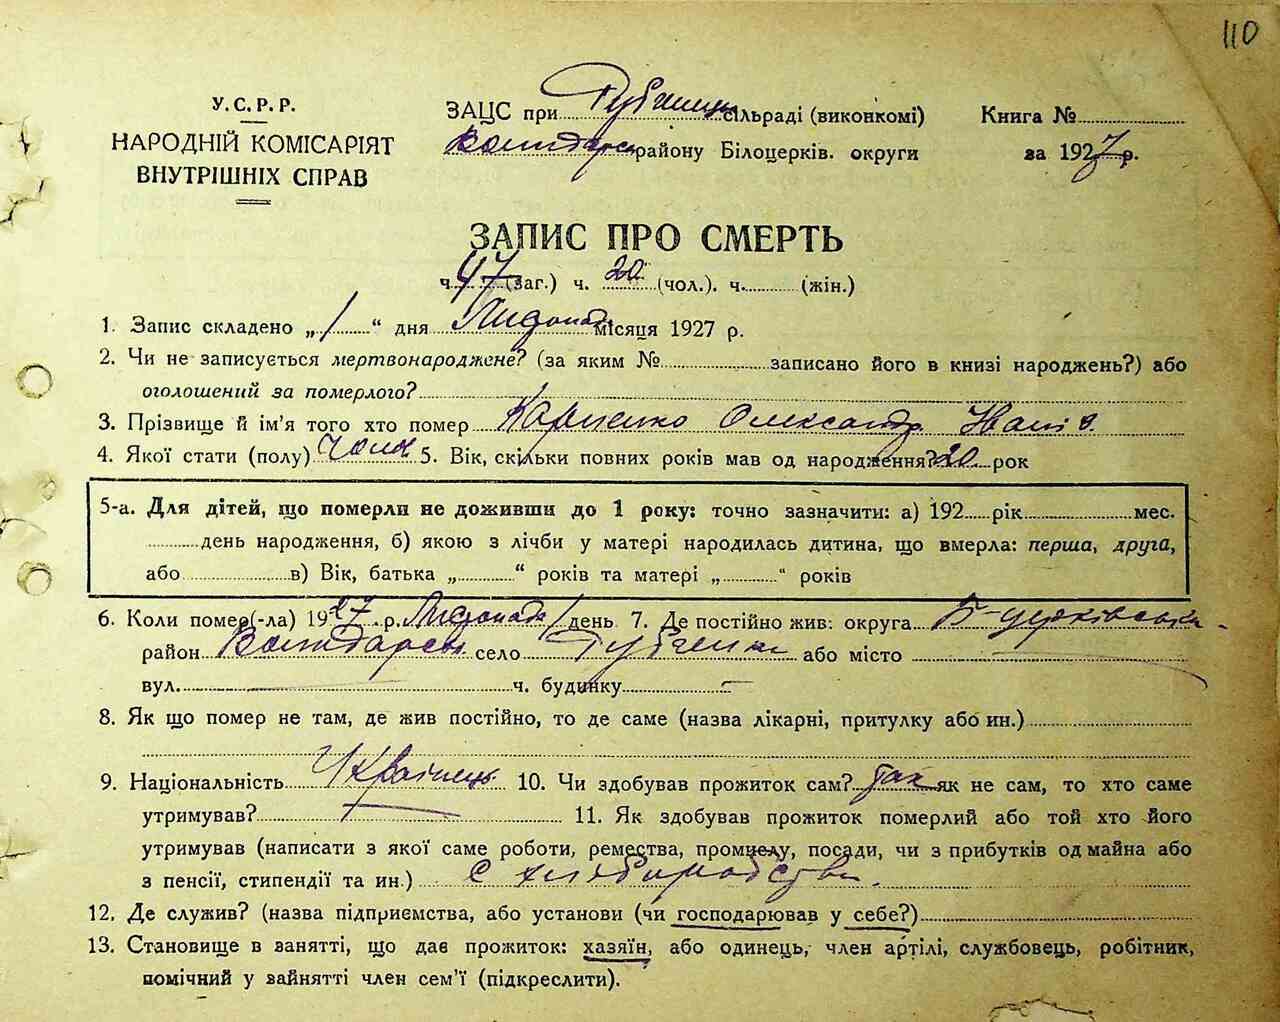 110
У.С.Р.Р.
НАРОДНІЙ КОМІСАРІЯТ
ВНУТРІШНІХ СПРАВ
ЗАЦС при сільраді (виконкомі)
району Білоцерків. округи
Книга №
за 1927 р.
ЗАПИС ПРО СМЕРТЬ
ч. 47 (заг.) ч. 20 (чол.). ч. (жін.)
1. Запис складено „1“ дня Листопада місяця 1927 р.
2. Чи не записується мертвонароджене? (за яким № записано його в книзі народжень?) або
оголошений за померлого?
3. Прізвище й ім'я того хто помер Карпенко Олександр Іванів
4. Якої стати (полу) Чолов 5. Вік, скільки повних років мав од народження? 20 рок
5-а. Для дітей, що померли не доживши до 1 року: точно зазначити: а) 192 рік мес.
день народження, б) якою з лічби у матері народилась дитина, що вмерла: перша, друга,
або в) Вік, батька „ “ років та матері „ “ років
6. Коли помер(-ла) 1927 р. Листопада 1 день 7. Де постійно жив: округа Б-церківська
район село або місто
вул. ч. будинку
8. Як що помер не там, де жив постійно, то де саме (назва лікарні, притулку або ин.)
9. Національність Українець 10. Чи здобував прожиток сам? так як не сам, то хто саме
утримував? 11. Як здобував прожиток померлий або той хто його
утримував (написати з якої саме роботи, ремества, промислу, посади, чи з прибутків од майна або
з пенсії, стипендії та ин.) С хлеборобства.
12. Де служив? (назва підприємства, або установи (чи господарював у себе?)
13. Становище в занятті, що дає прожиток: хазяїн, або одинець, член артілі, службовець, робітник,
помічний у зайнятті член сем'ї (підкреслити).